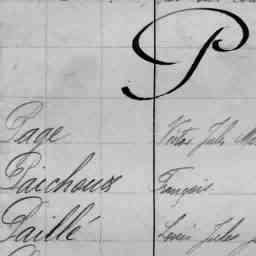 P
Page Victor Jules
Paichoux François
Paillé Louis Jules